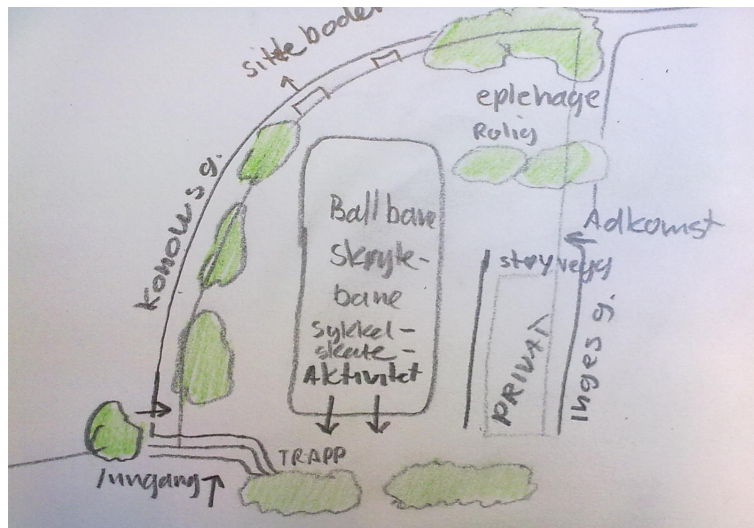 sitteboder
eplehage
Rolig
konows g.
Ballbane
Skøyte-
bane
Sykkel-
skate-
Aktivitet
Adkomst
støyvegg
PRIVAT
Inges g.
TRAPP
Inngang